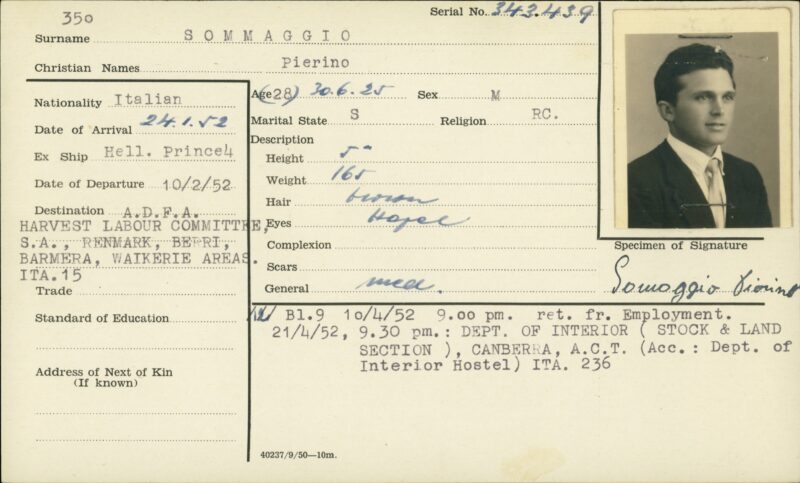 350
Serial No. 343.439
Surname SOMMAGGIO
Christian Names Pierino
Nationality Italian
Date of Arrival 24.1.52
Ex Ship Hell. Prince4
Date of Departure 10/2/52
Destination A.D.F.A.
HARVEST LABOUR COMMITTEE,
S.A., RENMARK, BERRI,
BARMERA, WAIKERIE AREAS.
ITA.15
Trade
Standard of Education
Address of Next of Kin
(If known)
Age (28) 30.6.25 Sex M
Marital State S Religion RC.
Description
Height 5"
Weight 165
Hair brown
Eyes Hazel
Complexion
Scars
General med.
Specimen of Signature
Somaggio Pierino
Bl.9 10/4/52 9.00 pm. ret. fr. Employment.
21/4/52, 9.30 pm.: DEPT. OF INTERIOR ( STOCK & LAND
SECTION ), CANBERRA, A.C.T. (Acc.: Dept. of
Interior Hostel) ITA. 236
40237/9/50—10m.